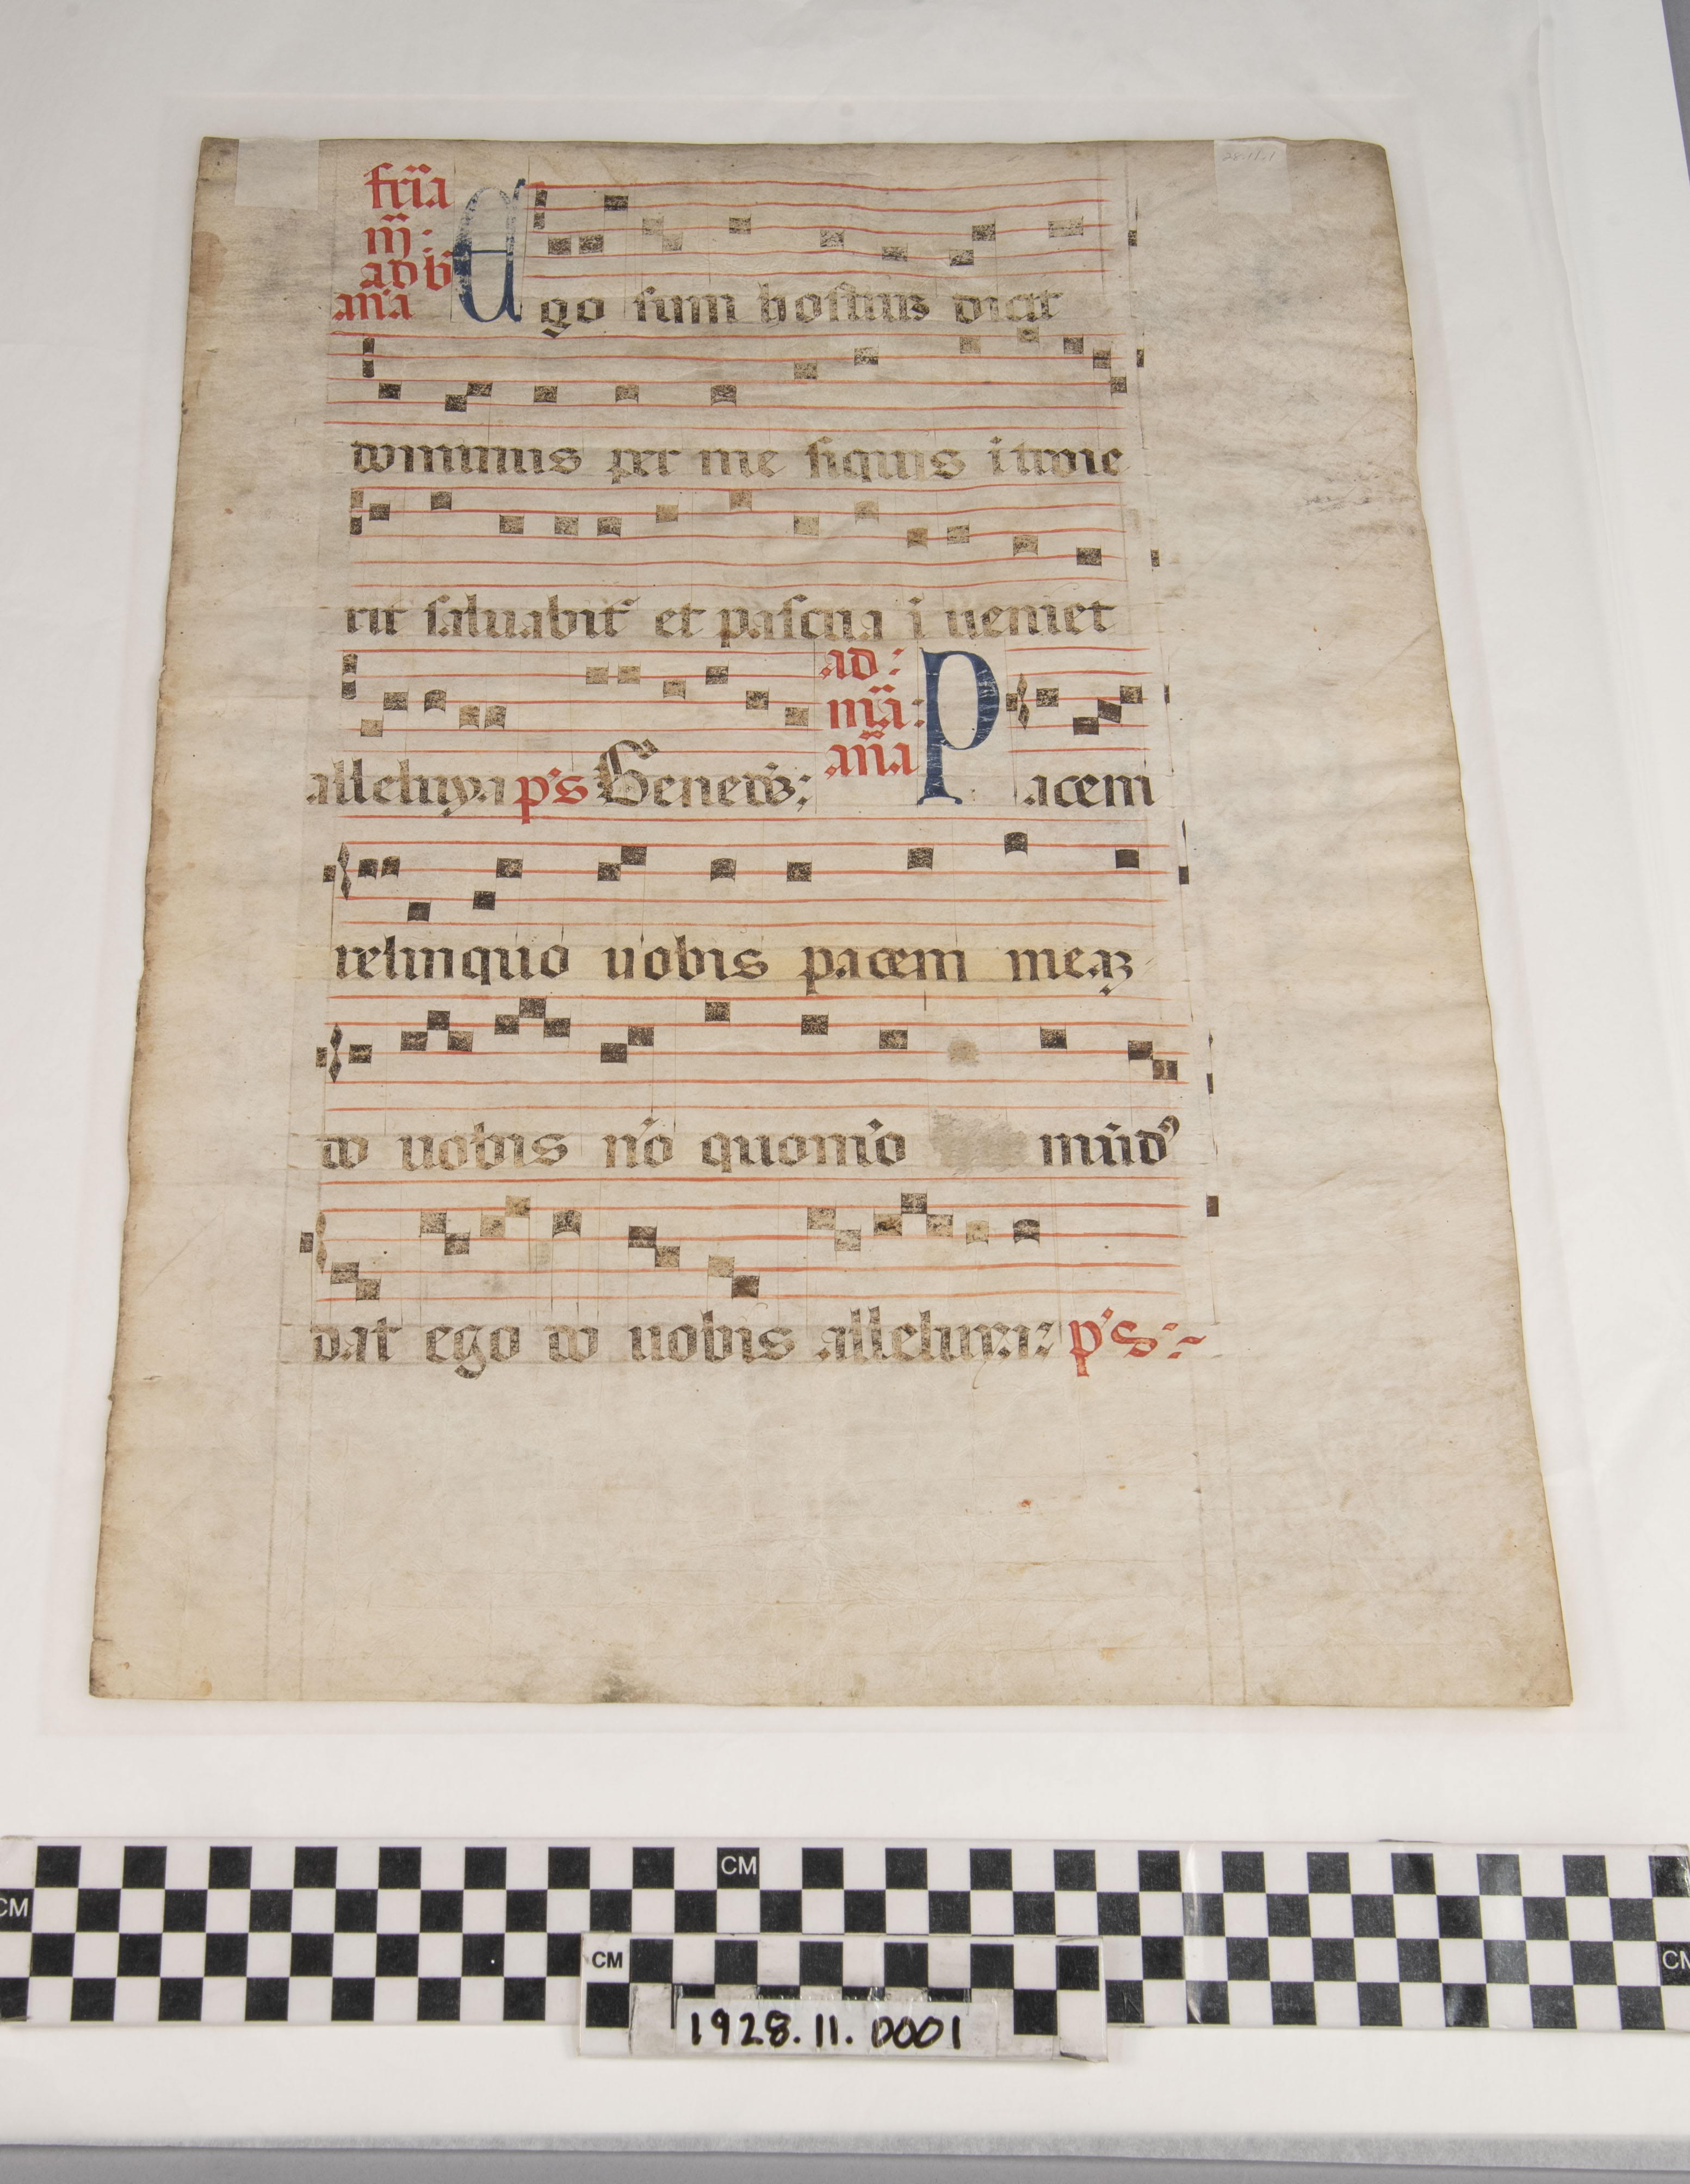 28.11.1
fr̄ia
m̄:
ad b̄
an̄a
Ego sum hostius dicit
dominus per me siquis itroie
rit saluabit᷑ et pascua i ueniet
alleluya p's Bened's:
ad:
m̄a:
an̄a
Pacem
relinquo uobis pacem meaʒ
do uobis n'o quom'o mūdꝰ
dat ego do uobis alleluya: p's:~
CM
CM
CM
CM
1928.11.0001